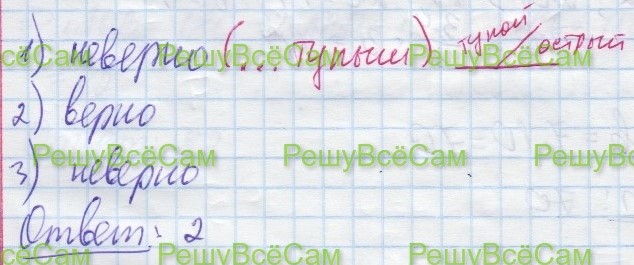 1) неверно (... тупым) тупой острый
РешуВсёСам РешуВсёСам РешуВсёСам
2) верно
РешуВсёСам РешуВсёСам РешуВсёСам
3) неверно
Ответ: 2
РешуВсёСам РешуВсёСам РешуВсёСам